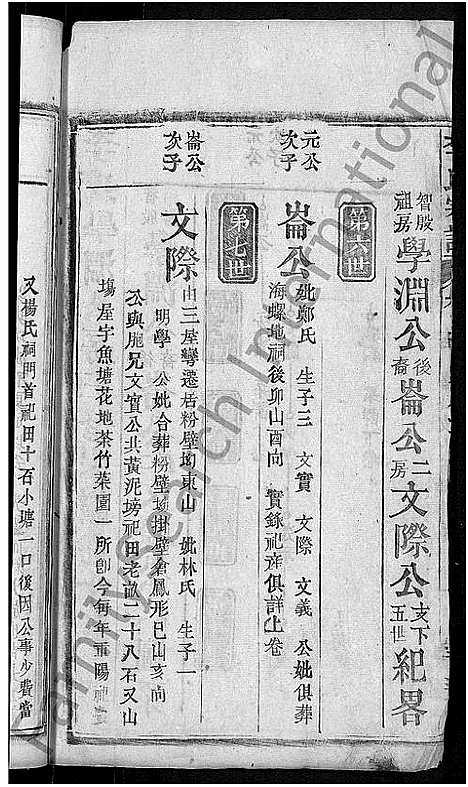 智殷祖房學淵公後裔崙公二房文際公支下五世紀畧
第六世
元公次子
崙公
妣鄭氏 生子三 文實 文際 文義 公妣俱葬
海螺地祠後卯山酉向 實錄祀產俱詳上卷
第七世
崙公次子
文際
由三屋彎遷居粉壁坳東山 妣林氏 生子一
明學 公妣合葬粉壁坳掛壁倉鳳形巳山亥向
公與胞兄文實公北黃泥塝祀田老畝二十八石又山
塲屋宇魚塘花地茶竹菜園一所卽今每年重陽
又楊氏祠門首祀田十石小塘一口後因公事少費當
FamilySearch International